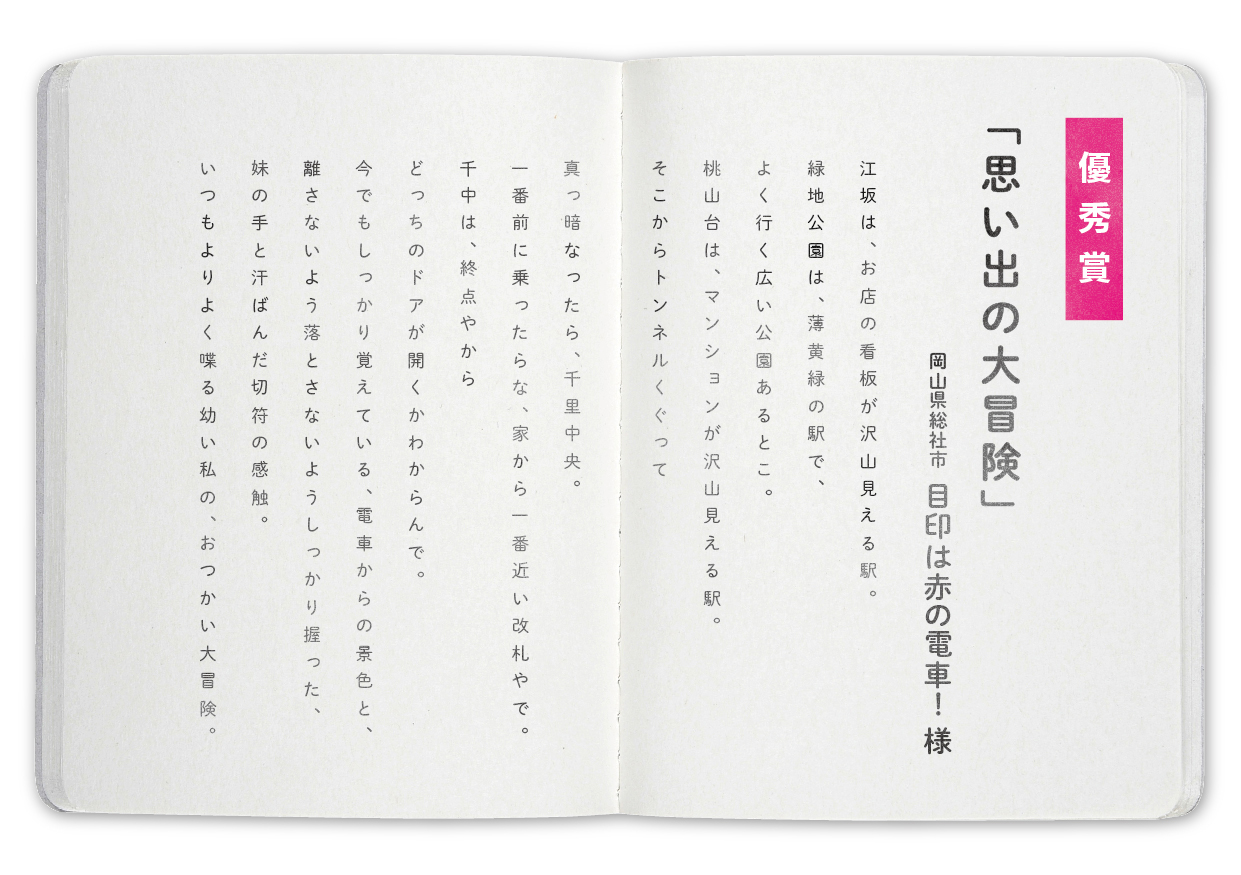 優秀賞
「思い出の大冒険」
岡山県総社市 目印は赤の電車！様
江坂は、お店の看板が沢山見える駅。
緑地公園は、薄黄緑の駅で、
よく行く広い公園あるとこ。
桃山台は、マンションが沢山見える駅。
そこからトンネルくぐって
真っ暗なったら、千里中央。
一番前に乗ったらな、家から一番近い改札やで。
千中は、終点やから
どっちのドアが開くかわからんで。
今でもしっかり覚えている、電車からの景色と、
離さないよう落とさないようしっかり握った、
妹の手と汗ばんだ切符の感触。
いつもよりよく喋る幼い私の、おつかい大冒険。